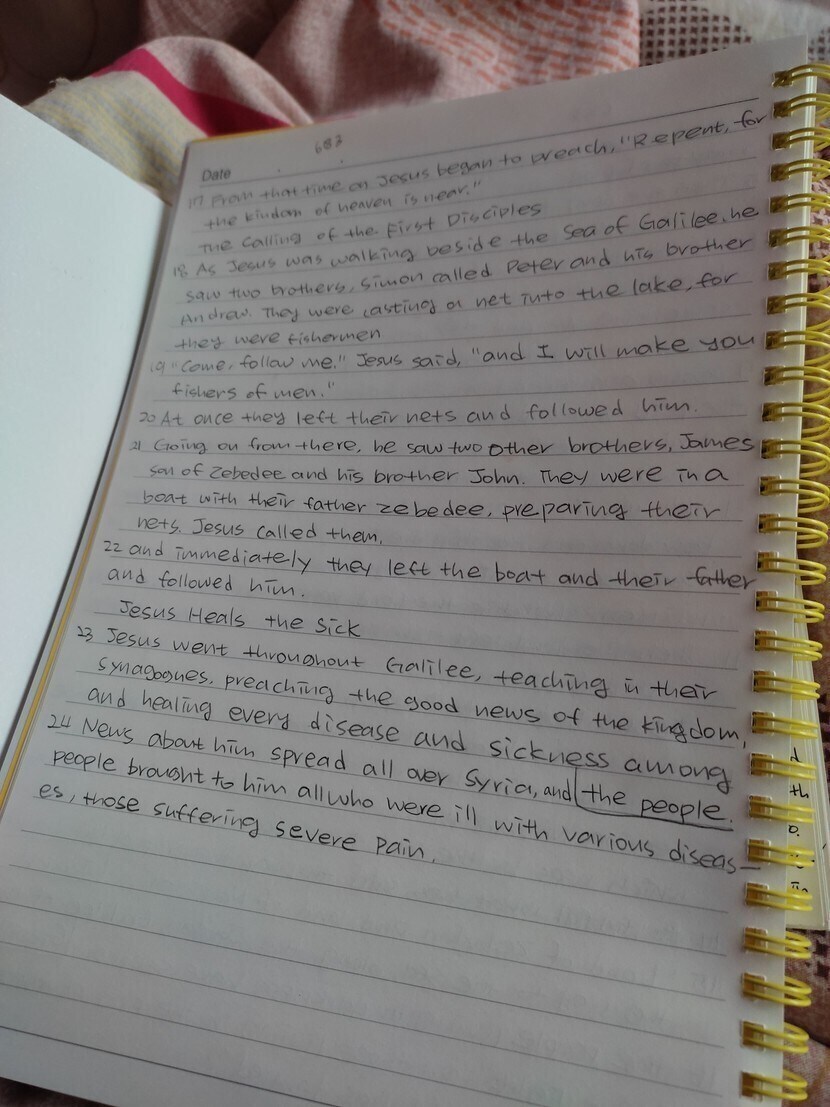 Date
687
17 From that time on Jesus began to preach, "Repent, for
the kindom of heaven is near."
The Calling of the First Disciples
18 As Jesus was walking beside the Sea of Galilee, he
saw two brothers, Simon called Peter and his brother
Andrew. They were casting a net into the lake, for
they were fishermen
19 "Come, follow me." Jesus said, "and I will make you
fishers of men."
20 At once they left their nets and followed him.
21 Going on from there, he saw two other brothers, James
son of Zebedee and his brother John. They were in a
boat with their father zebedee, preparing their
nets. Jesus called them,
22 and immediately they left the boat and their father
and followed him.
Jesus Heals the Sick
23 Jesus went throughout Galilee, teaching in their
synagogues, preaching the good news of the kingdom,
and healing every disease and sickness among
the people.
24 News about him spread all over Syria, and
people brought to him all who were ill with various diseas-
es, those suffering severe pain,
d
th